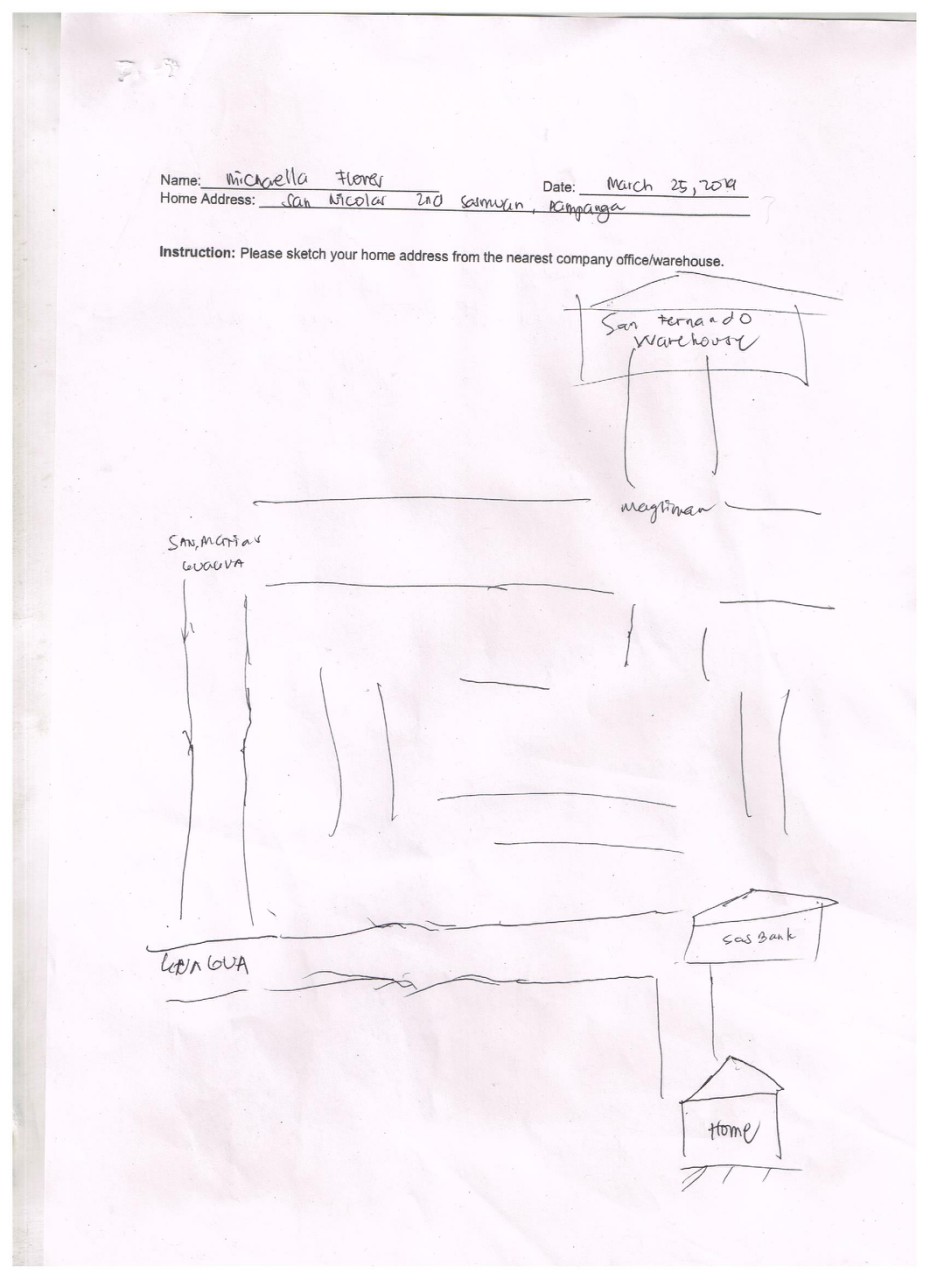 Name: Michaella Flores Date: March 25, 2019
Home Address: San Nicolas 2nd Sasmuan, Pampanga
Instruction: Please sketch your home address from the nearest company office/warehouse.
San Fernando
Warehouse
Magliman
SAN, Matias
GUAGUA
GUAGUA
Sas Bank
Home